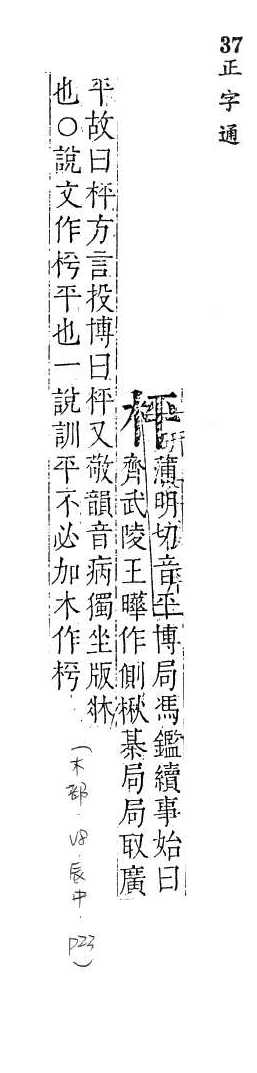 37
正字通
枰
蒲明切音平博局馮鑑續事始曰
齊武陵王曄作側楸棊局局取廣
平故曰枰方言投博曰枰又敬韻音病獨坐版牀
也○說文作枰平也一說訓平不必加木作枰
(木部.V8.辰中.P23)